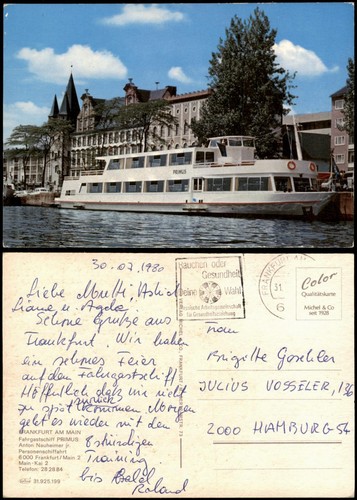 PRIMUS
30.07.1980
Liebe Mutti, Astrid
Liane u.
Schöne Grüße aus
Frankfurt. Wir haben
ein schönes Feier
auf den Fahrgastschiff
Hoffentlich daß wir nicht
zu spät zurück kommen Morgen
geht es wieder mit den
8 stündigen
Training
bis Bald
Roland
FRANKFURT AM MAIN
Fahrgastschiff PRIMUS
Anton Nauheimer jr.
Personenschiffahrt
6000 Frankfurt/Main 2
Main-Kai 2
Telefon: 28 28 84
31.925.199
Rauchen oder
Gesundheit
Deine Wahl
FRANKFURT
31.
6
Color
Qualitätskarte
Michel & Co
seit 1928
Frau
Brigitte Goschler
JULIUS VOSSELER, 136
2000 HAMBURG 54